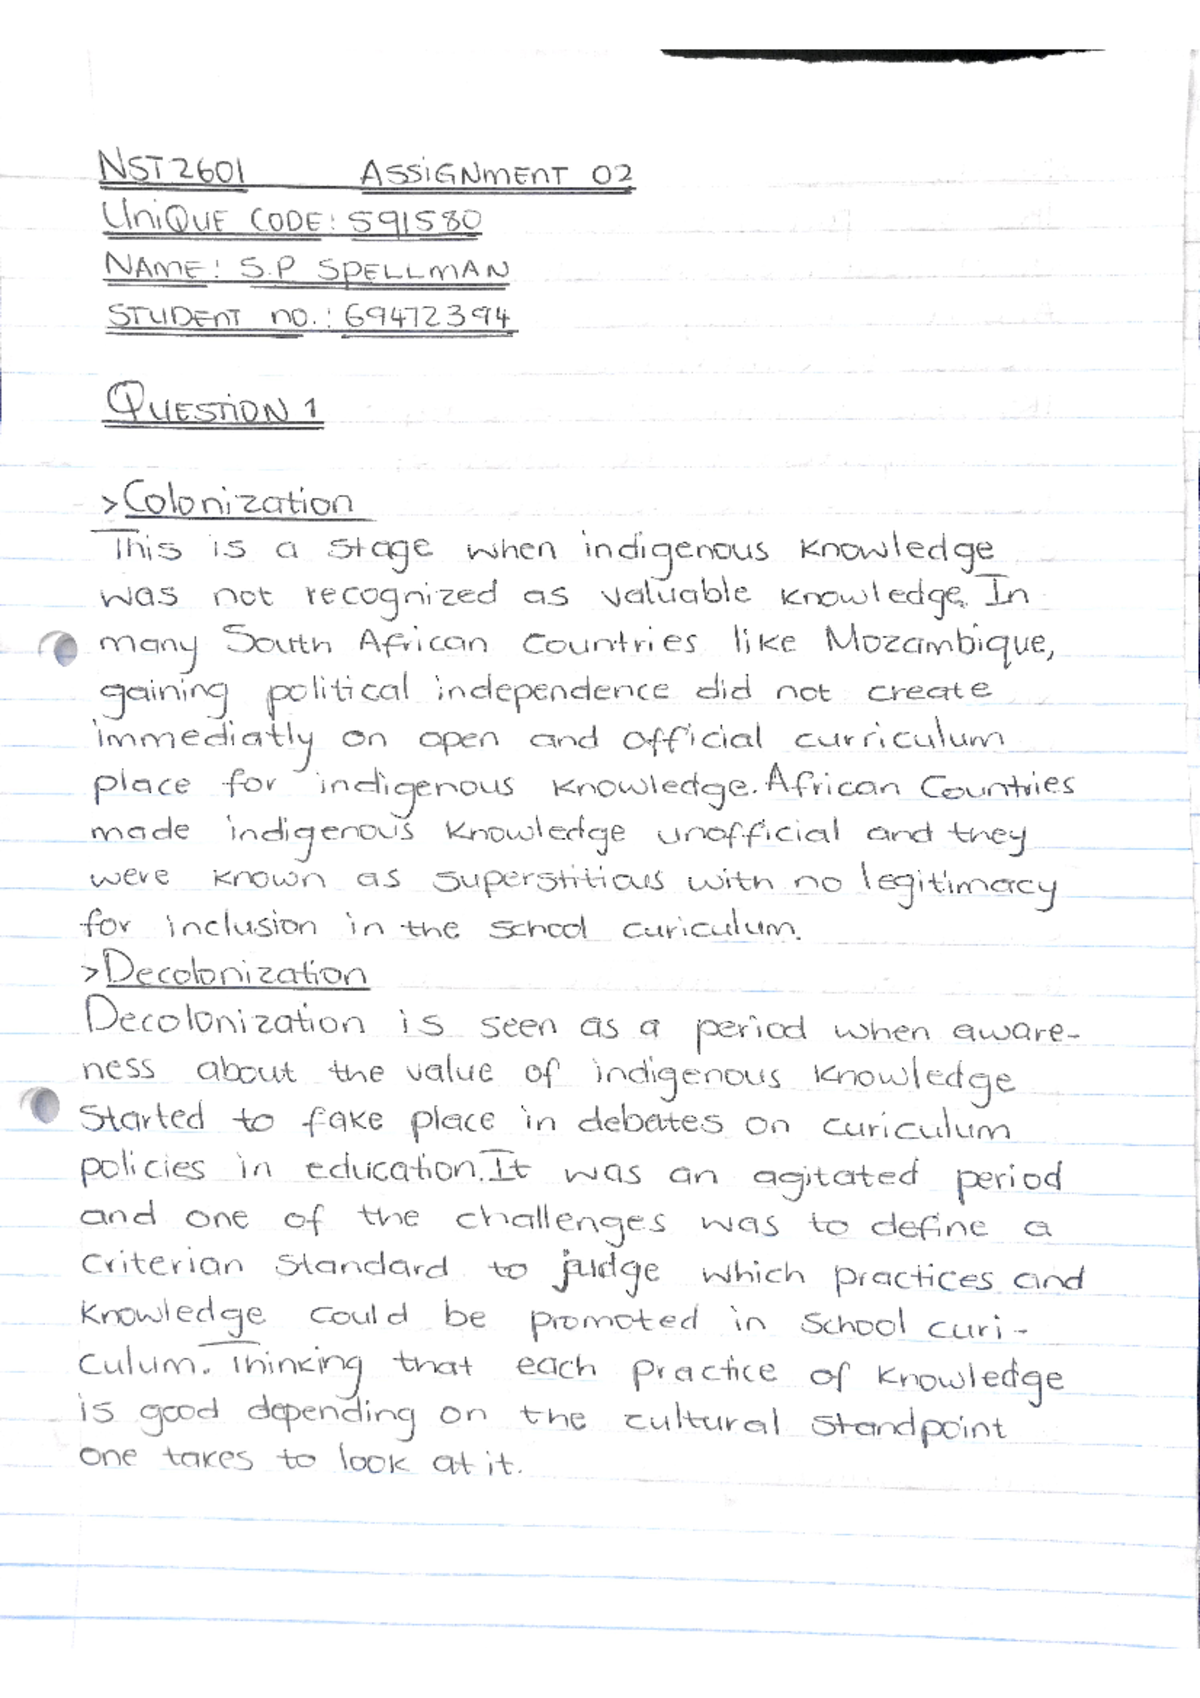 NST2601 ASSiGNMENT 02
UNiQUE CODE: 591580
NAME: S.P SPELLMAN
STUDENT no.: 69472394
QUESTiON 1
>Colonization
This is a stage when indigenous knowledge
was not recognized as valuable knowledge. In
many South African countries like Mozambique,
gaining political independence did not create
immediatly on open and official curriculum
place for indigenous knowledge. African Countries
made indigenous knowledge unofficial and they
were known as superstitious with no legitimacy
for inclusion in the school curiculum.
>Decolonization
Decolonization is seen as a period when aware-
ness about the value of indigenous knowledge
started to take place in debates on curiculum
policies in education. It was an agitated period
and one of the challenges was to define a
criterian standard to judge which practices and
knowledge could be promoted in school curi-
culum. Thinking that each practice of knowledge
is good depending on the cultural standpoint
one takes to look at it.